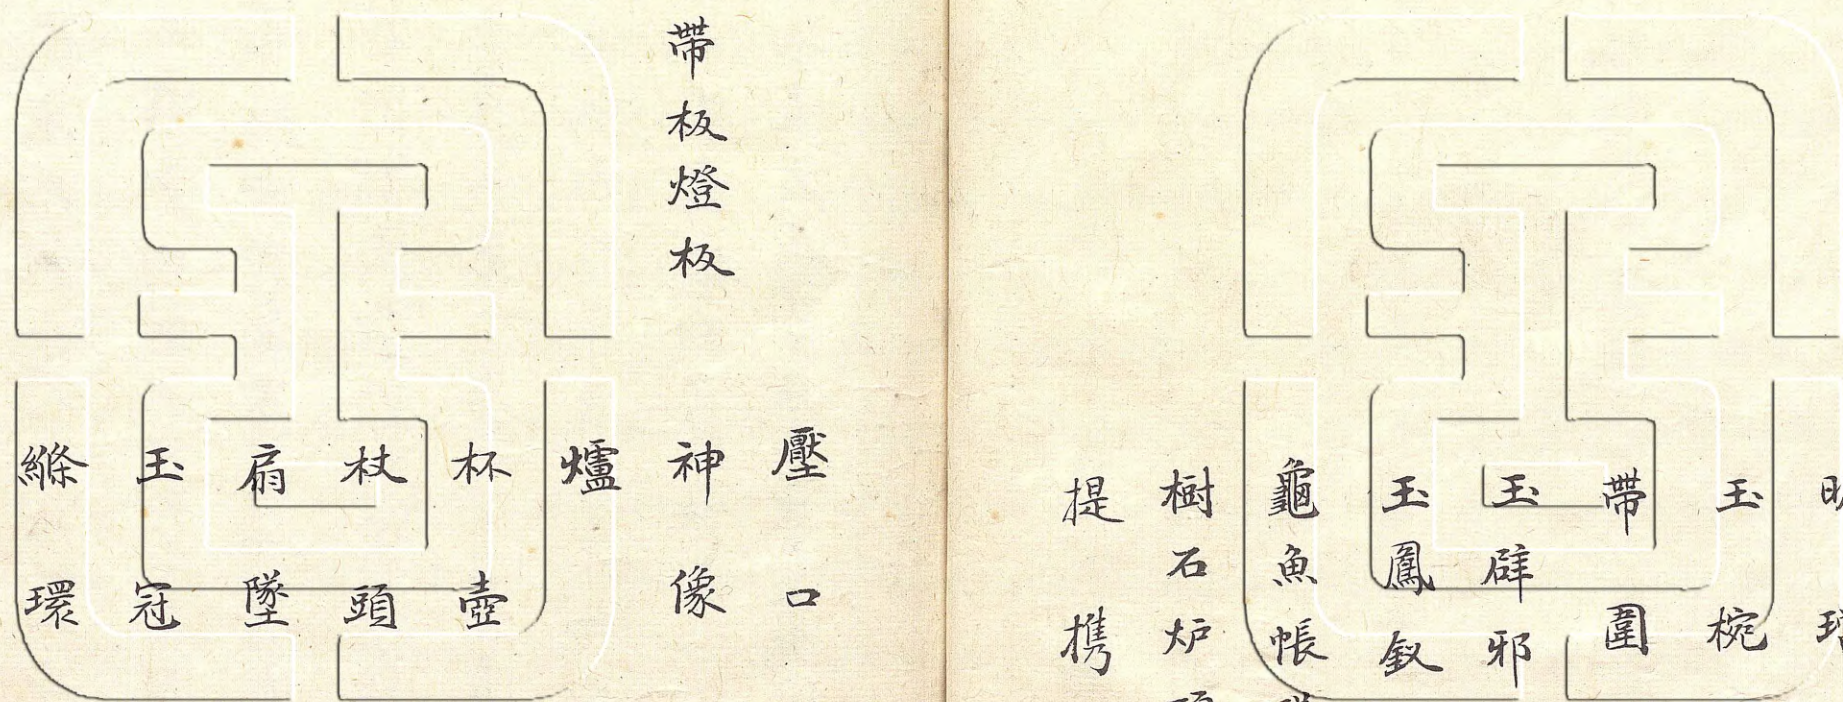 玉椀
帶圍
玉辟邪
玉鳳釵
龜魚帳
樹石炉
提携
壓口
帶板燈板 神像
爐
杯壺
杖頭
扇墜
玉冠
縧環